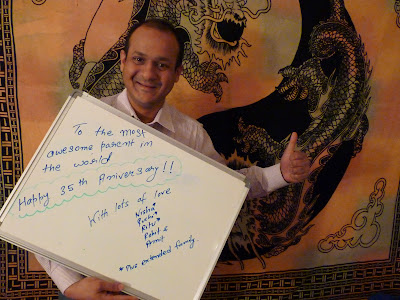 To the most
awesome parent in
the world
Happy 35th Aniversary!!
With lots of love
Nishu
Ritu
Rohit &
Amit
*Plus extended family.